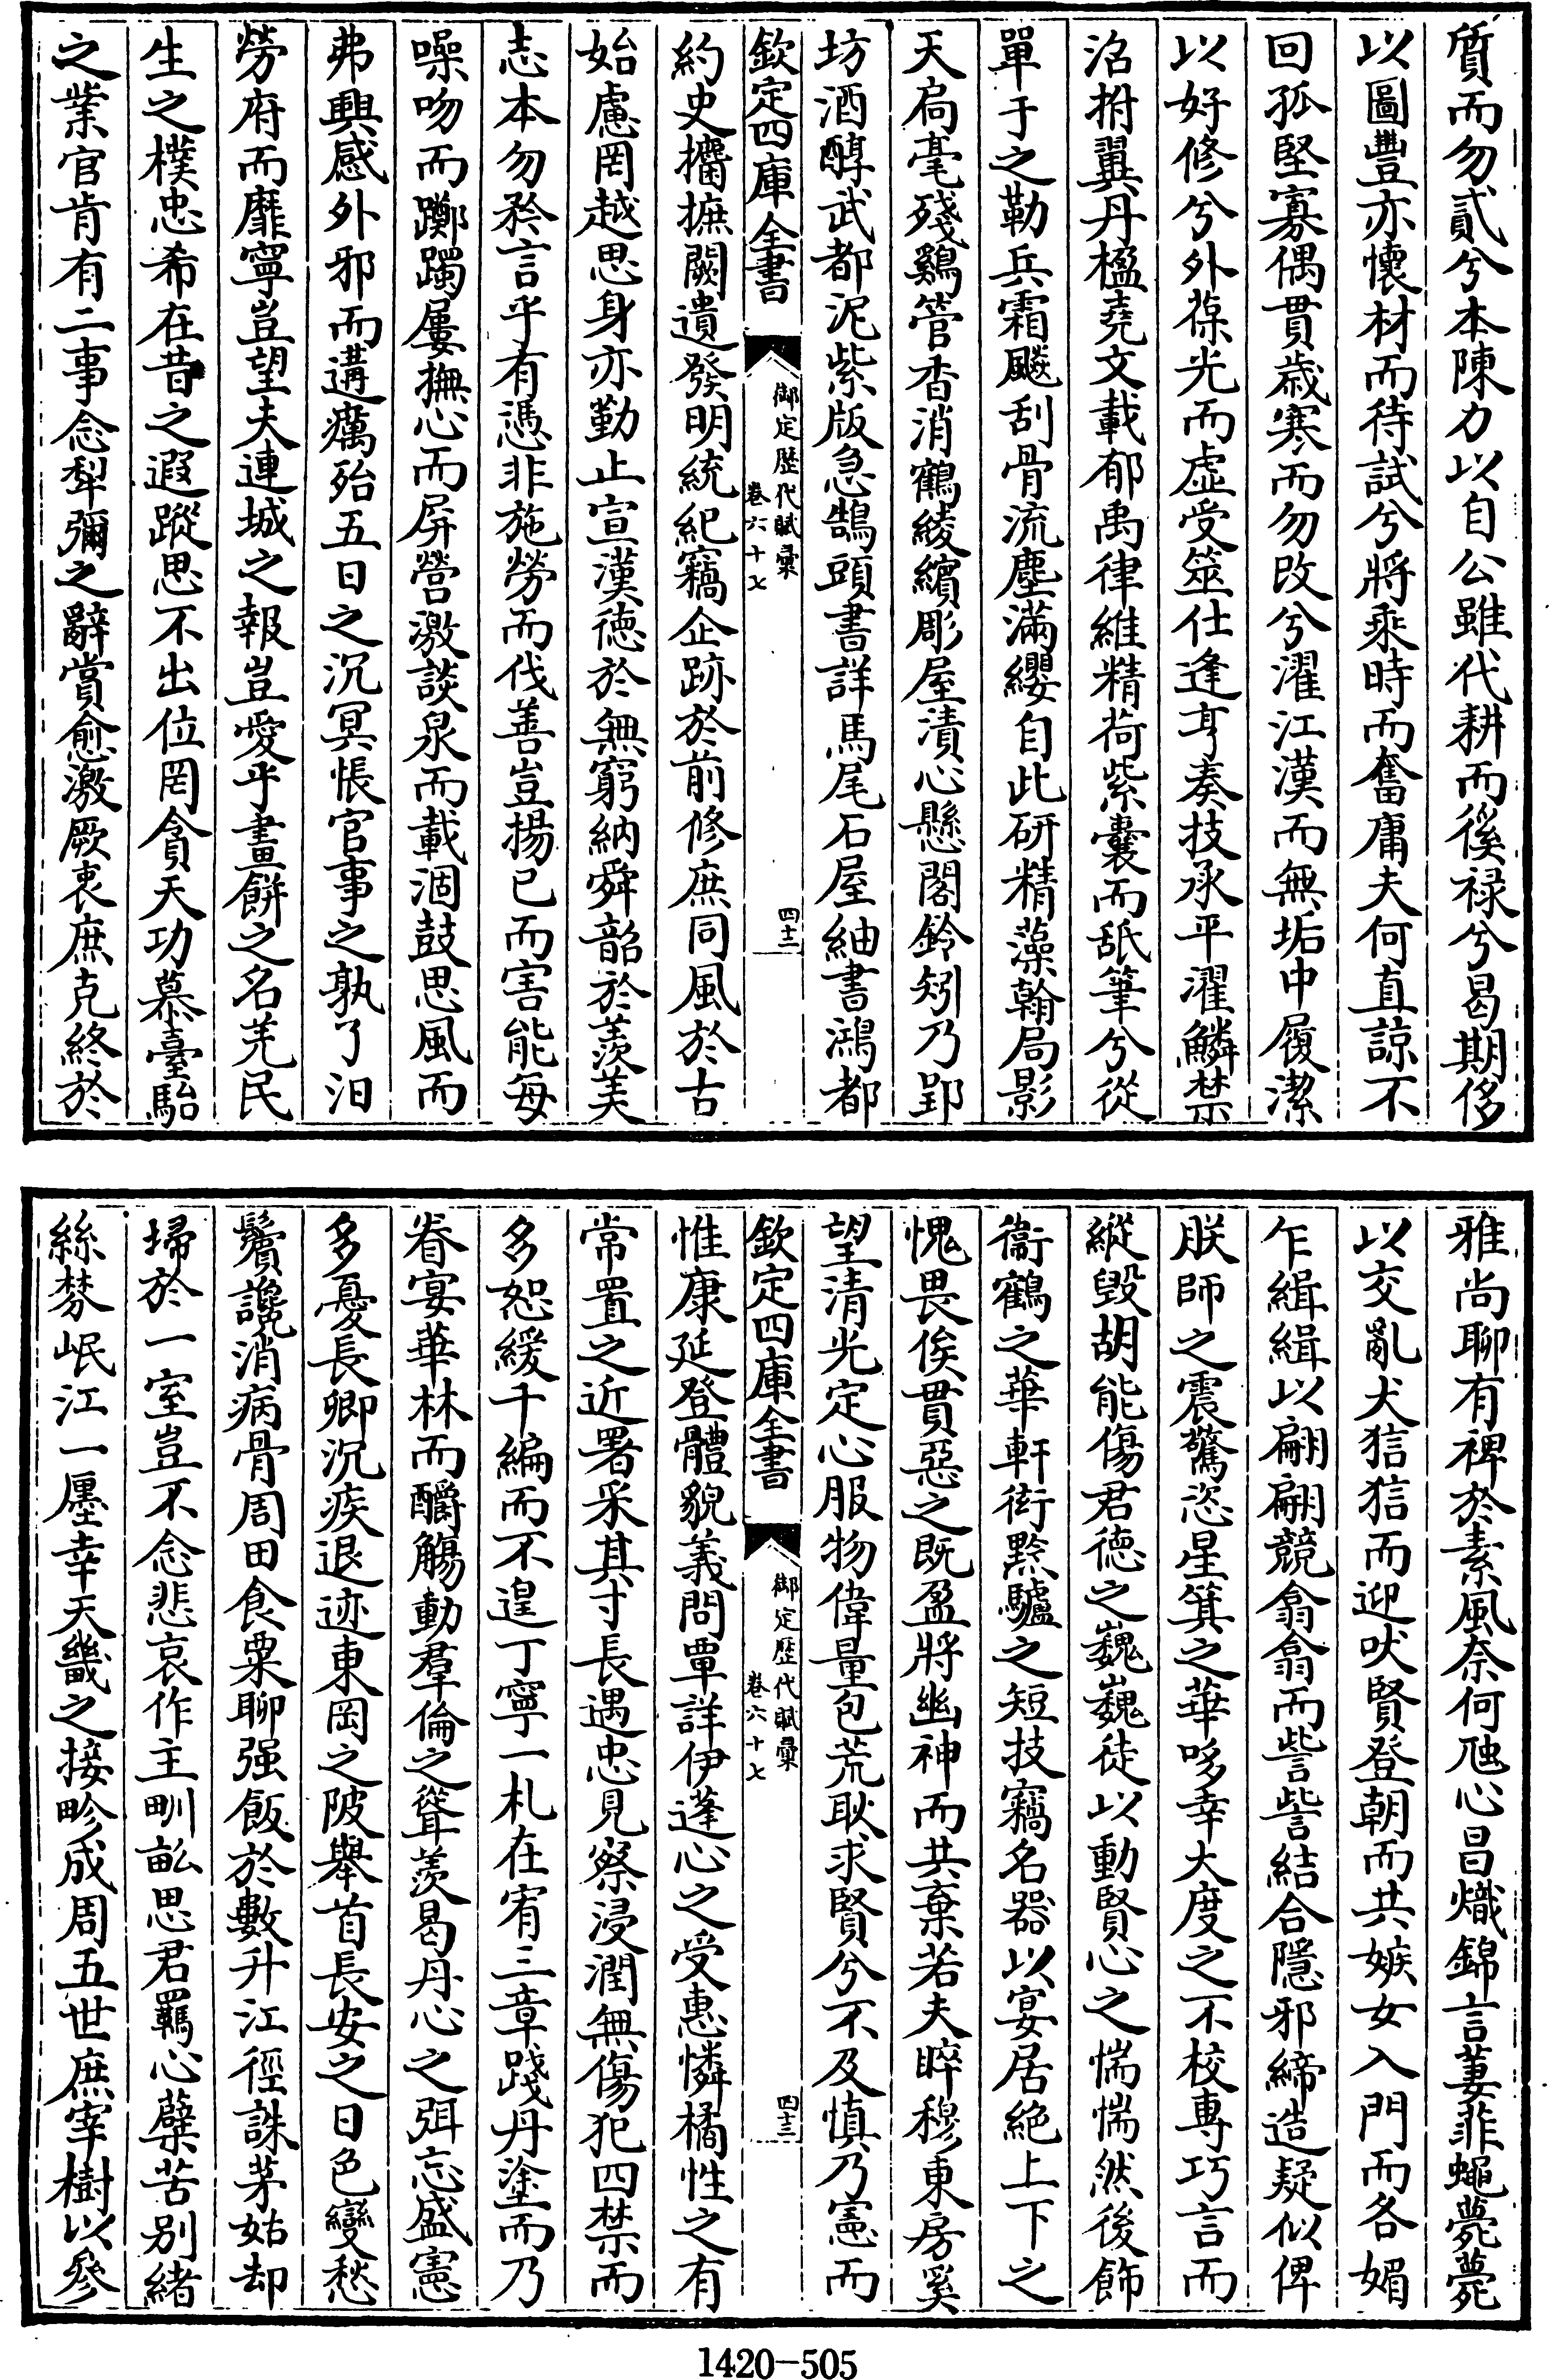 質而勿貳兮本陳力以自公雖代耕而徯祿兮曷期侈
以圖豐亦懷材而待試兮將乘時而奮庸夫何直諒不
回孤堅寡偶貫歲寒而勿改兮濯江漢而無垢中履潔
以好修兮外葆光而虛受筮仕逢亨奏技承平濯鱗禁
沼拊翼丹楹堯文載郁禹律維精荷紫囊而舐筆兮從
單于之勒兵霜飈刮骨流塵滿纓自此研精藻翰局影
天扃毫殘鷄管香消鶴綾繽彫屋漬心懸閣鈴矧乃郢
坊酒醇武都泥紫版急鵠頭書詳馬尾石屋紬書鴻都
欽定四庫全書
御定歷代賦彙
卷六十七
四十二
約史攟摭闕遺發明統紀竊企跡於前修庶同風於古
始慮罔越思身亦勤止宣漢德於無窮納舜韶於羡美
志本勿矜言乎有憑非施勞而伐善豈揚己而害能每
噪吻而躑躅屢撫心而屏營激談泉而載涸鼓思風而
弗興感外邪而遘癘殆五日之沉冥悵官事之孰了汨
勞府而靡寧豈望夫連城之報豈愛乎畫餅之名羌民
生之樸忠希在昔之遐蹤思不出位罔貪天功慕臺駘
之業官肯有二事念犁彌之辭賞愈激厥衷庶克終於
雅尚聊有裨於素風奈何虺心昌熾錦言萋菲蠅薨薨
以交亂犬狺狺而迎吠賢登朝而共嫉女入門而各媢
乍緝緝以翩翩競翕翕而訾訾結合隱邪締造疑似俾
朕師之震驚恣星箕之華哆幸大度之不校專巧言而
縱毀胡能傷君德之巍巍徒以動賢心之惴惴然後飾
衞鶴之華軒衒黔驢之短技竊名器以宴居絶上下之
愧畏俟貫惡之旣盈將幽神而共棄若夫睟穆東房奚
望清光定心服物偉量包荒耿求賢兮不及愼乃憲而
欽定四庫全書
御定歷代賦彙
卷六十七
四十三
惟康延登體貌義問覃詳伊蓬心之受惠憐橘性之有
常置之近署采其寸長遇忠見察浸潤無傷犯四禁而
多恕緩千編而不遑丁寧一札在宥三章踐丹塗而乃
眷宴華林而釂觴動羣倫之聳羡曷丹心之弭忘盛憲
多憂長卿沉疾退迹東岡之陂舉首長安之日色變愁
鬢讒消病骨周田食粟聊强飯於數升江徑誅茅姑却
掃於一室豈不念悲哀作主畎畝思君羈心蘖苦别緒
絲棼岷江一廛幸天畿之接畛成周五世庶宰樹以參
1420-505